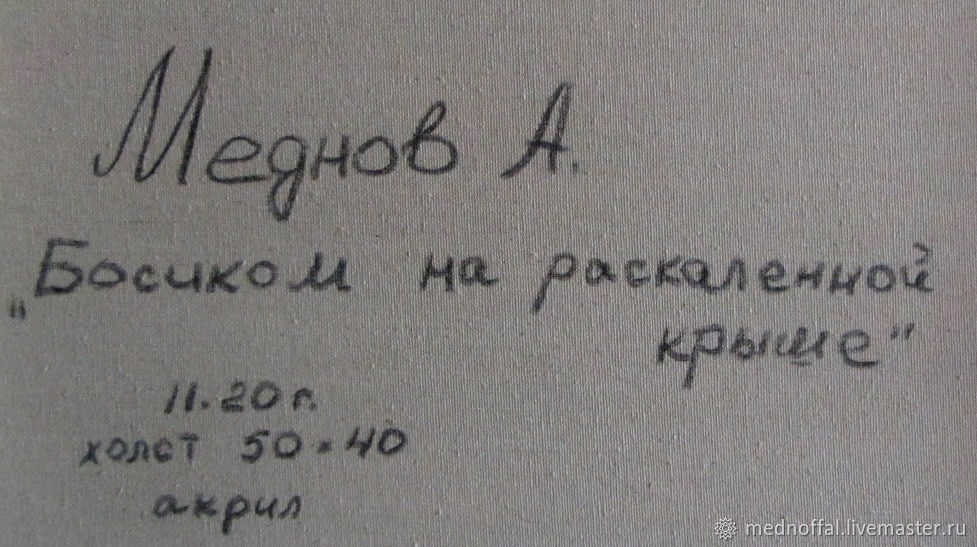 Меднов А.
„Босиком на раскаленной
крыше"
11.20 г.
холст 50×40
акрил
mednoffal.livemaster.ru